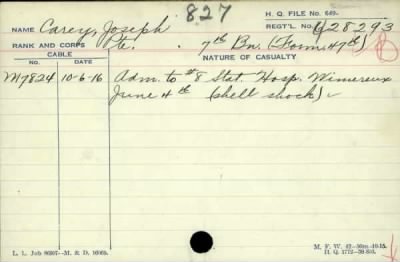 827
H. Q. FILE No. 649-
NAME Carey, Joseph REGT'L. No. 628293
RANK AND CORPS Pte. 7th Bn. (Form. 47th)
CABLE NATURE OF CASUALTY
No. DATE
M7824 10-6-16 Adm. to #8 Stat. Hosp. Wimereux
June 4th (shell shock)
L. L. Job 86207—M. & D. 16069. M. F. W. 42—50m.-10-15.
H. Q. 1772-39-893.